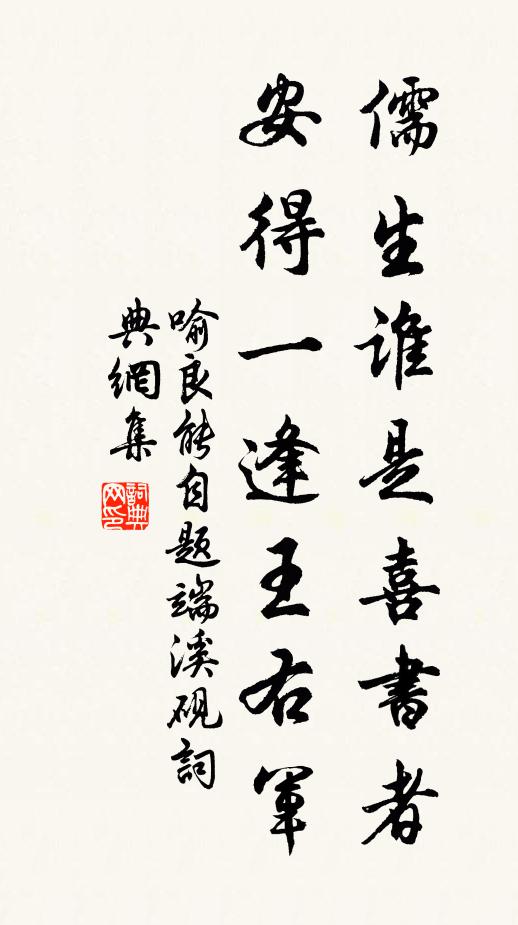 儒生誰是喜書者
安得一逢王右軍
喻良能自題端溪硯詞
典網集
詞典网印